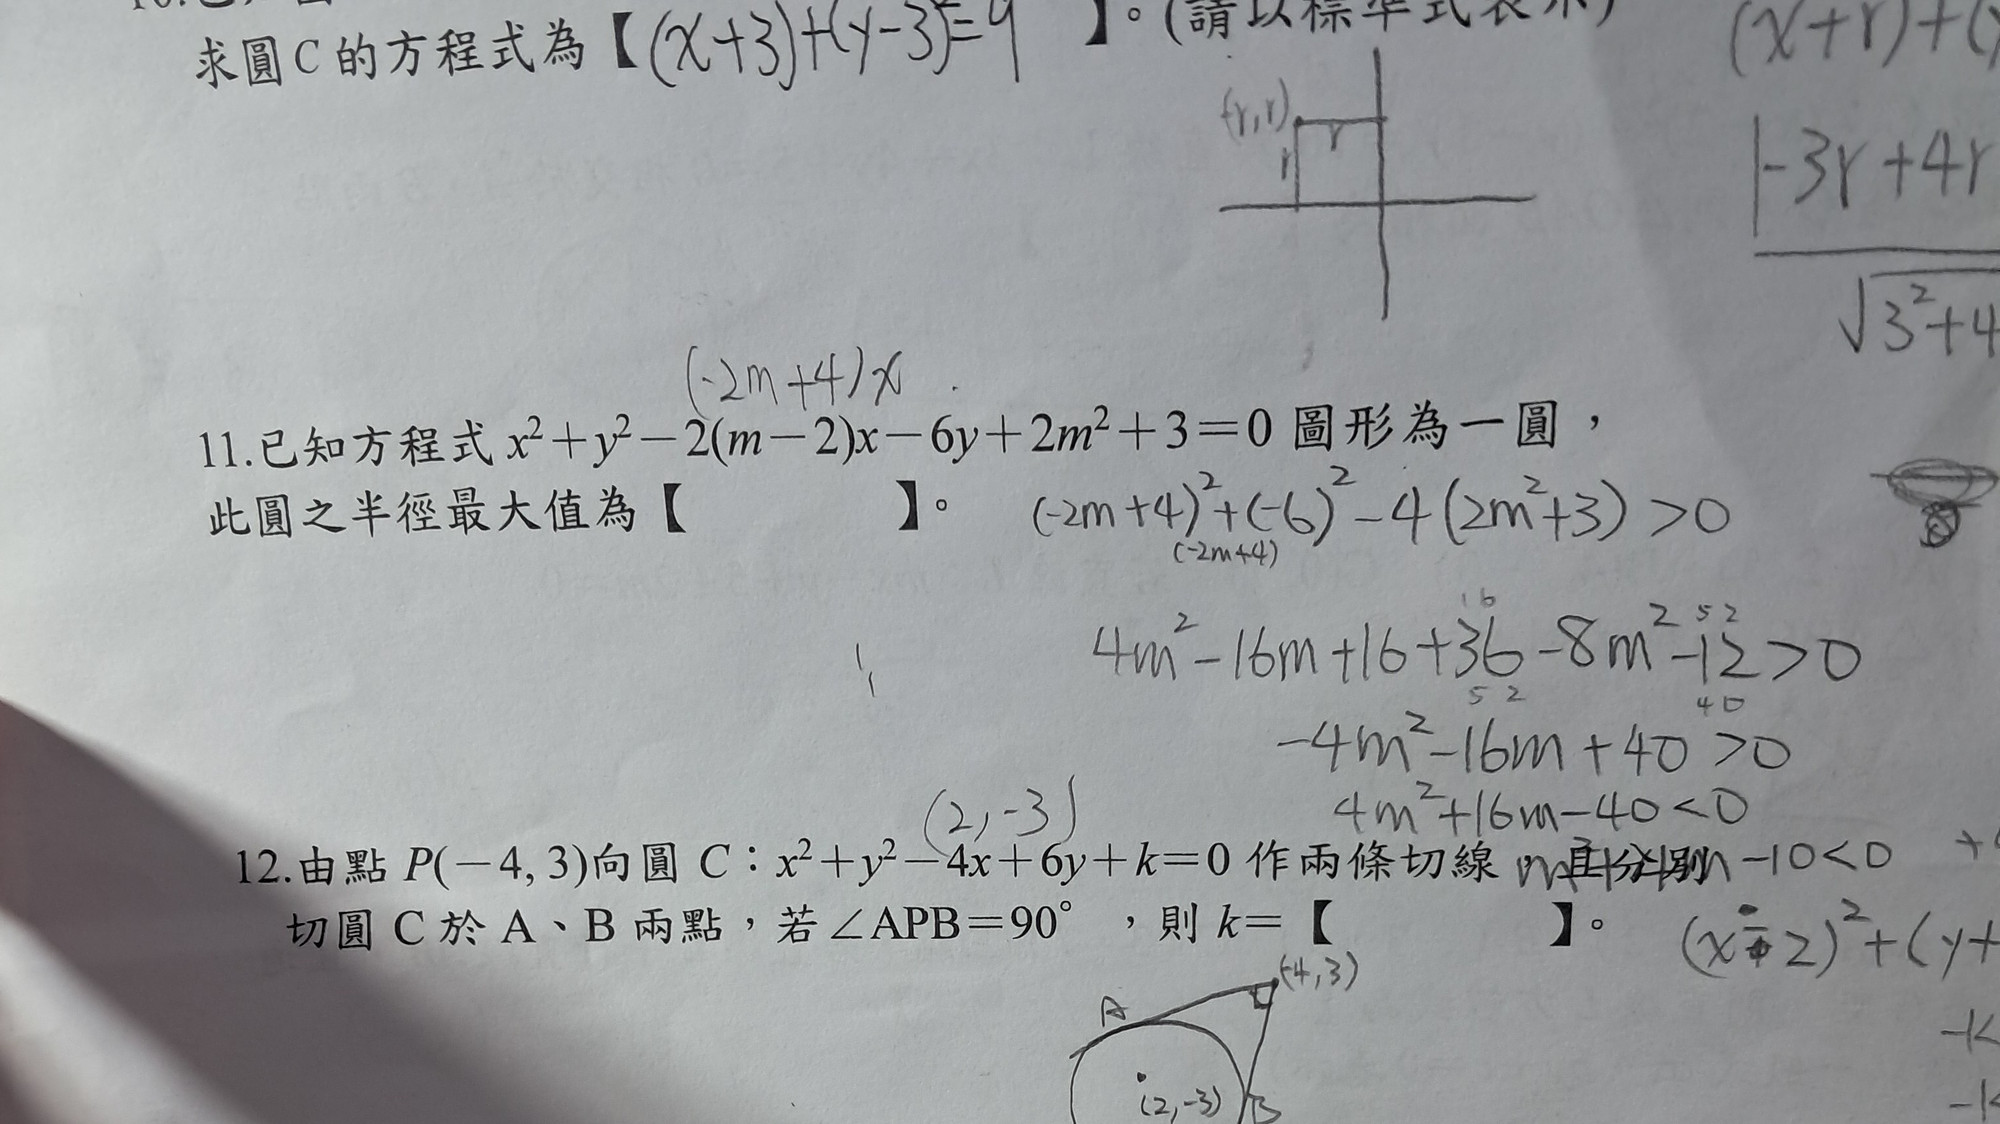 求圓C的方程式為【(x+3)+(y-3)²=9 】。(請以標準式表示)
(-r,r)
r
r
(x+r)+(y
|-3r+4r
√3²+4
(-2m+4)x
11.已知方程式 x²+y²-2(m-2)x-6y+2m²+3=0 圖形為一圓，
此圓之半徑最大值為【 】。
(-2m+4)²+(-6)²-4(2m²+3)>0
(-2m+4)
16 52
4m²-16m+16+36-8m²-12>0
52 40
-4m²-16m+40>0
4m²+16m-40<0
m²+4m-10<0
(2,-3)
12.由點 P(-4, 3)向圓 C：x²+y²-4x+6y+k=0 作兩條切線，且分別
切圓 C 於 A、B 兩點，若∠APB=90°，則 k=【 】。
(x-2)²+(y+
-k
-k
(-4,3)
A
(2,-3)
B